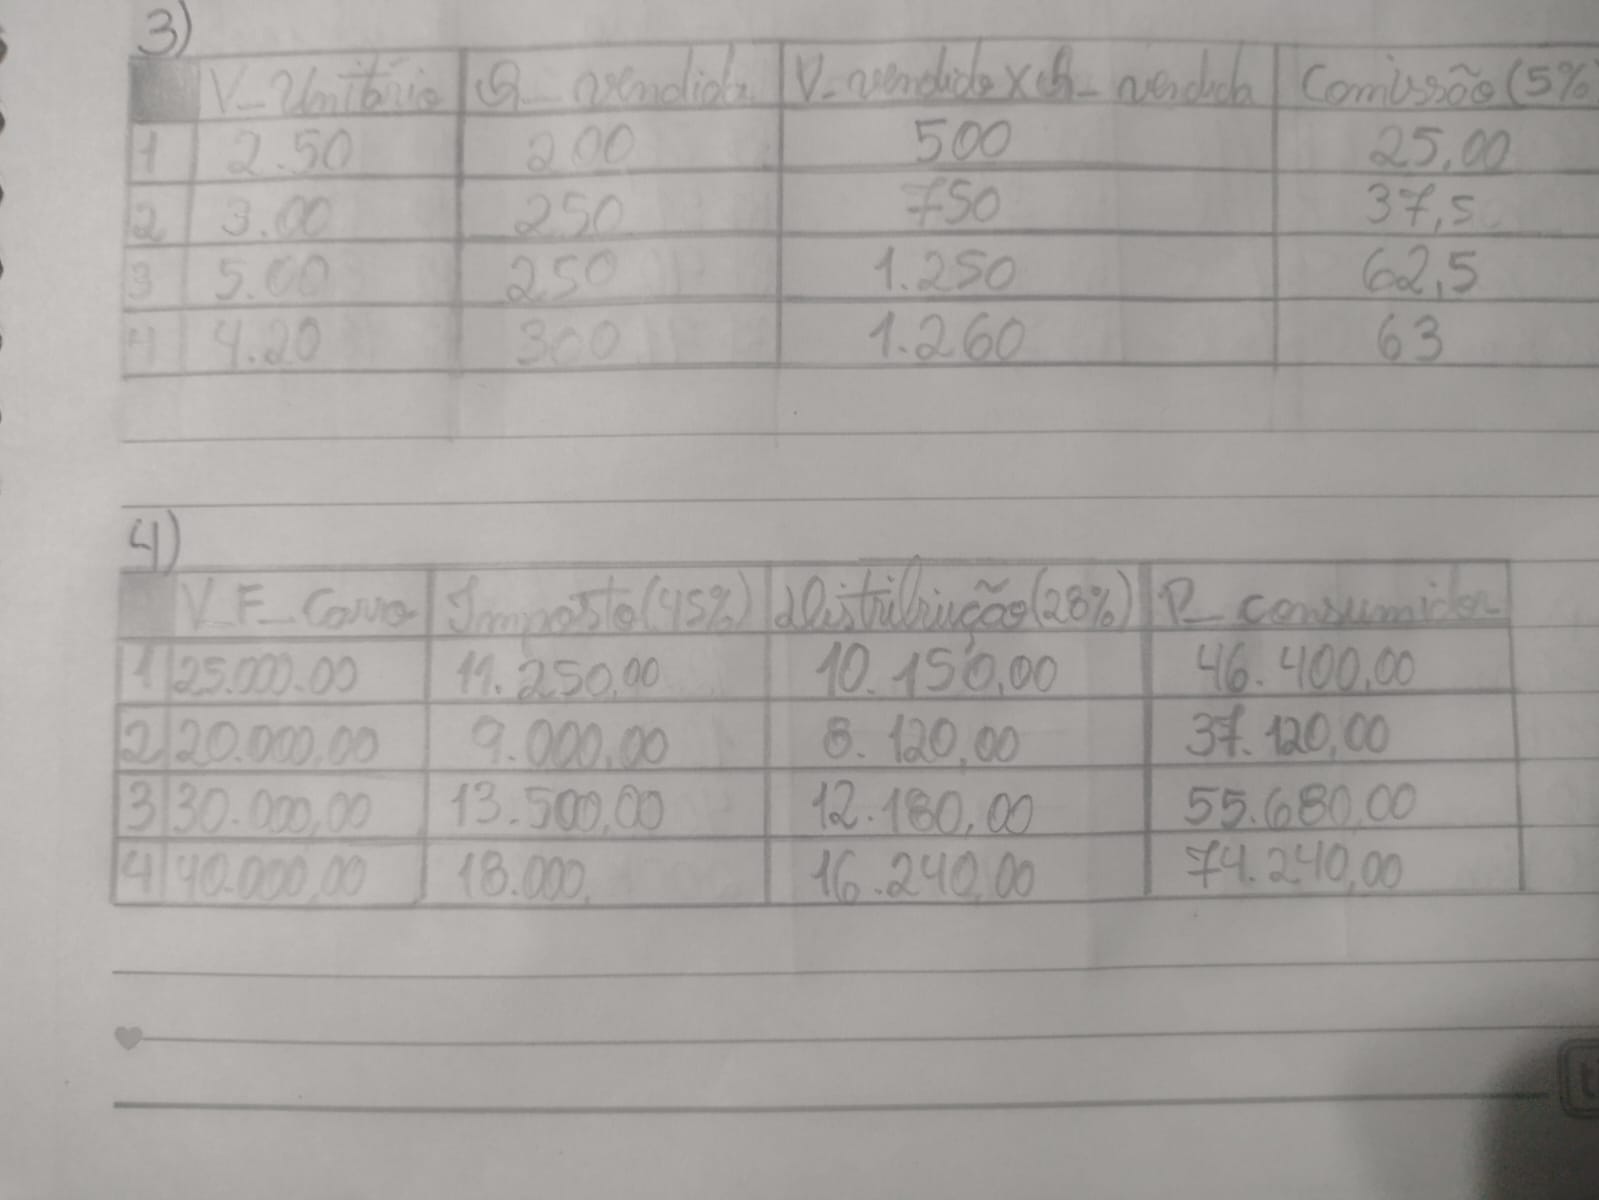 3)
V_Unitário Q_vendida V_vendido x Q_vendida Comissão (5%
1 2.50 200 500 25,00
2 3.00 250 750 37,5
3 5.00 250 1.250 62,5
4 4.20 300 1.260 63
4)
V_F_Carro Imposto (45%) Distribuição (28%) P_consumidor
1 25.000.00 11.250,00 10.150,00 46.400,00
2 20.000,00 9.000,00 8.120,00 37.120,00
3 30.000,00 13.500,00 12.180,00 55.680,00
4 40.000,00 18.000, 16.240,00 74.240,00